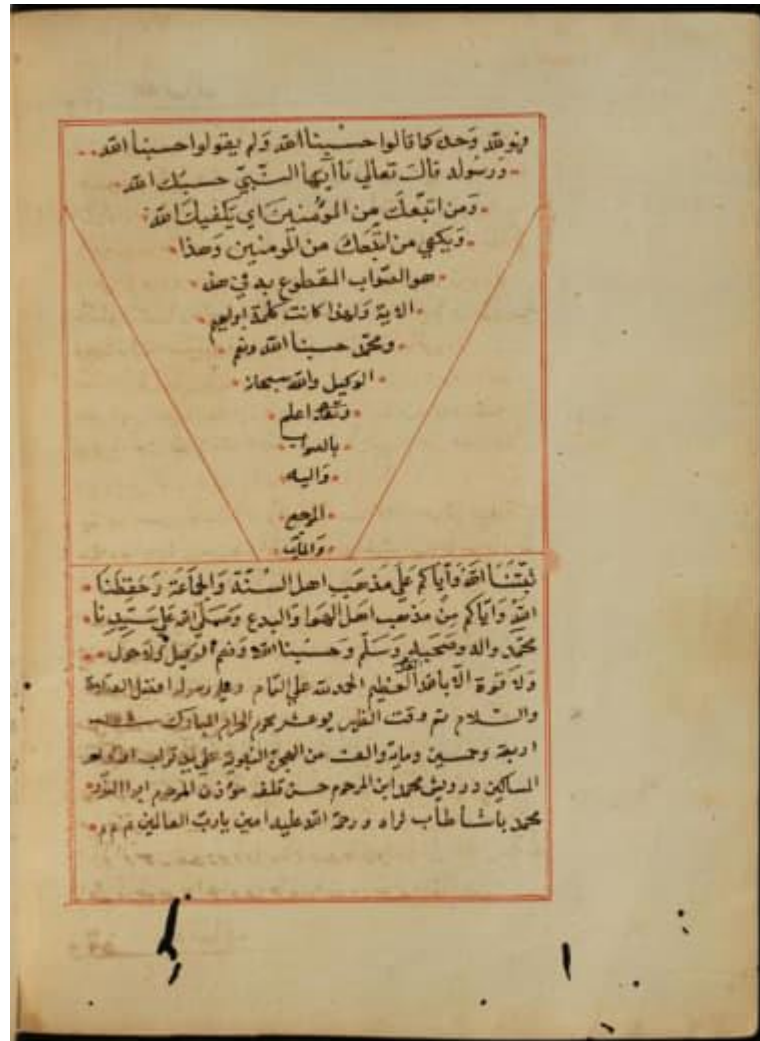 فهو لله وحده كما قالوا حسبنا الله ولم يقولوا حسبنا الله
ورسوله قال تعالى يا ايها النبي حسبك الله
ومن اتبعك من المؤمنين اي يكفيك الله
ويكفي من اتبعك من المومنين وهذا
هو الصواب المقطوع به في هذه
الاية ولهذا كانت كلمة ابرهيم
ومحمد حسبنا الله ونعم
الوكيل والله سبحانه
وتعالى اعلم
بالصواب
واليه
المرجع
والمآب
ثبتنا الله واياكم على مذهب اهل السنة والجاعة وحفظنا
الله واياكم من مذهب اهل الهوا والبدع وصلى الله على سيدنا
محمد واله وصحبه وسلم وحسبنا الله ونعم الوكيل ولا حول
ولا قوة الا بالله العظيم الحمد لله على التمام وعلى رسوله افضل الصلاة
والسلام تم وقت الظهر محرم الحرام المبارك
اربعة وخمسين وماية والف من الهجرة النبوية على يد تراب
المساكين درويش محمد ابن المرحوم حسن خلفه مؤذن المرحوم
محمد باشا طاب ثراه ورحمة الله عليه امين يا رب العالمين م م م